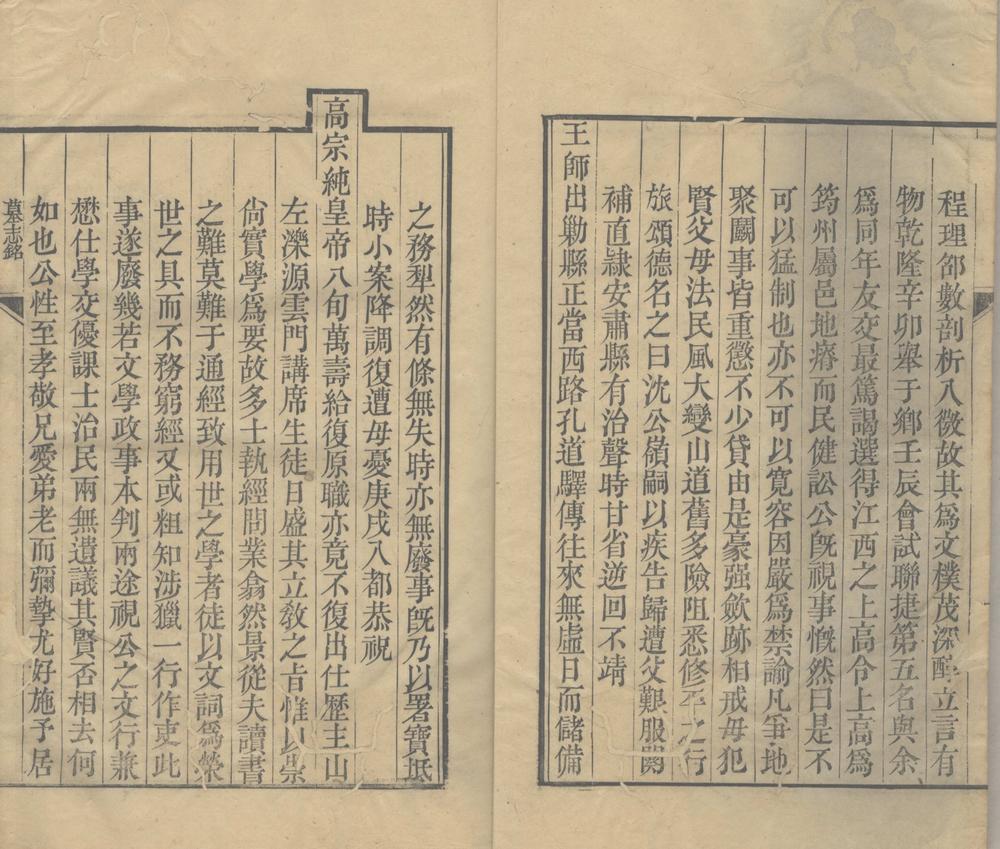 程理卻數剖析入微故其為文樸茂深醇立言有
物乾隆辛卯舉于鄉壬辰會試聯捷第五名與余
為同年友交最篤謁選得江西之上高令上高為
筠州屬邑地瘠而民健訟公既視事慨然曰是不
可以猛制也亦不可以寬容因嚴為禁諭凡爭地
聚鬭事皆重懲不少貸由是豪强歛跡相戒毋犯
賢父母法民風大變山道舊多險阻悉修平之行
旅頌德名之曰沈公嶺嗣以疾告歸遭父艱服闋
補直隷安肅縣有治聲時甘省逆回不靖
王師出勦縣正當西路孔道驛傳往來無虛日而儲備
之務犁然有條無失時亦無廢事旣乃以署寶坻
時小案降調復遭母憂庚戌入都恭祝
高宗純皇帝八旬萬壽給復原職亦竟不復出仕歷主山
左濼源雲門講席生徒日盛其立敎之旨惟以崇
尙實學為要故多士執經問業翕然景從夫讀書
之難莫難于通經致用世之學者徒以文詞為榮
世之具而不務窮經又或粗知涉獵一行作吏此
事遂廢幾若文學政事本判兩途視公之文行兼
懋仕學交優課士治民兩無遺議其賢否相去何
如也公性至孝敬兄愛弟老而彌摯尤好施予居
墓志銘